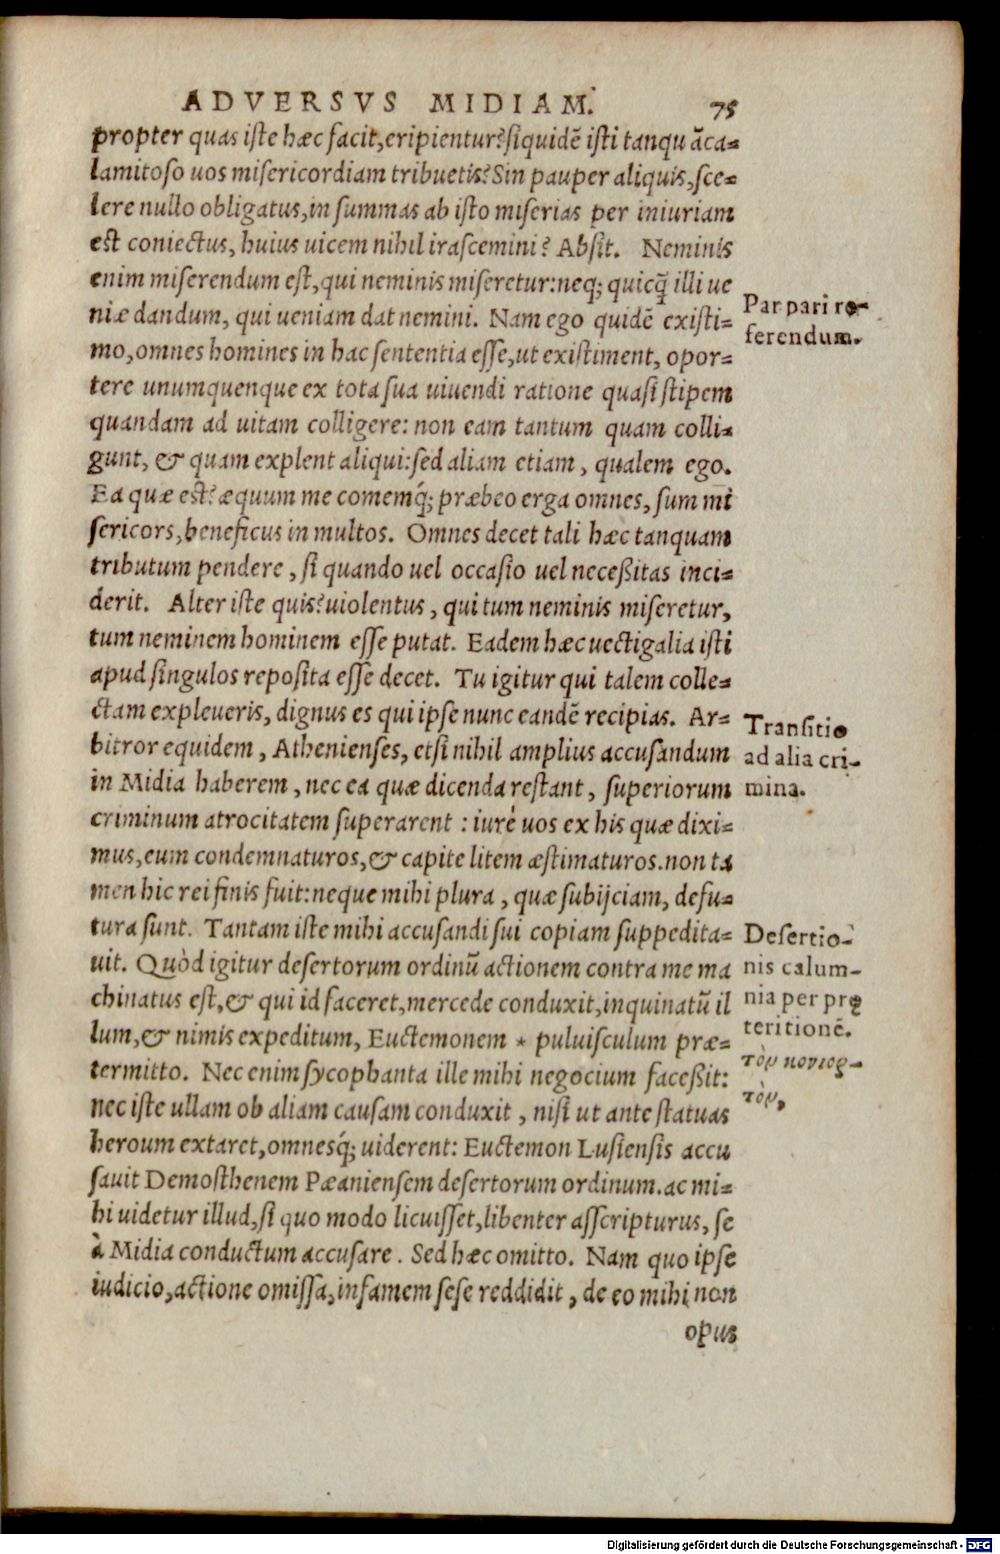 ADVERSVS MIDIAM. 75
propter quas iste hæc facit, eripientur? siquidẽ isti tanqu ãca=
lamitoso uos misericordiam tribuetis? Sin pauper aliquis, sce=
lere nullo obligatus, in summas ab isto miserias per iniuriam
est coniectus, huius uicem nihil irascemini? Absit. Neminis
enim miserendum est, qui neminis miseretur: neq; quicq̃ illi ue
niæ dandum, qui ueniam dat nemini. Nam ego quidẽ existi=
mo, omnes homines in hac sententia esse, ut existiment, opor=
tere unumquenque ex tota sua uiuendi ratione quasi stipem
quandam ad uitam colligere: non eam tantum quam colli=
gunt, & quam explent aliqui: sed aliam etiam, qualem ego.
Ea quæ est? æquum me comemq́; præbeo erga omnes, sum mi
sericors, beneficus in multos. Omnes decet tali hæc tanquam
tributum pendere, si quando uel occasio uel neceßitas inci=
derit. Alter iste quis? uiolentus, qui tum neminis miseretur,
tum neminem hominem esse putat. Eadem hæc uectigalia isti
apud singulos reposita esse decet. Tu igitur qui talem colle=
ctam expleueris, dignus es qui ipse nunc eandẽ recipias. Ar=
bitror equidem, Athenienses, etsi nihil amplius accusandum
in Midia haberem, nec ea quæ dicenda restant, superiorum
criminum atrocitatem superarent: iurè uos ex his quæ dixi=
mus, eum condemnaturos, & capite litem æstimaturos. non ta
men hic rei finis fuit: neque mihi plura, quæ subijciam, defu=
tura sunt. Tantam iste mihi accusandi sui copiam suppedita=
uit. Quòd igitur desertorum ordinũ actionem contra me ma
chinatus est, & qui id faceret, mercede conduxit, inquinatũ il
lum, & nimis expeditum, Euctemonem * puluisculum præ=
termitto. Nec enim sycophanta ille mihi negocium faceßit:
nec iste ullam ob aliam causam conduxit, nisi ut ante statuas
heroum extaret, omnesq́; uiderent: Euctemon Lusiensis accu
sauit Demosthenem Pæaniensem desertorum ordinum. ac mi=
hi uidetur illud, si quo modo licuisset, libenter asscripturus, se
à Midia conductum accusare. Sed hæc omitto. Nam quo ipse
iudicio, actione omissa, infamem sese reddidit, de eo mihi non
opus
Par pari re-
ferendum.
Transitio
ad alia cri-
mina.
Desertio-
nis calum-
nia per prę
teritionẽ.
τὸν κονιορ-
τὸν,
Digitalisierung gefördert durch die Deutsche Forschungsgemeinschaft - DFG